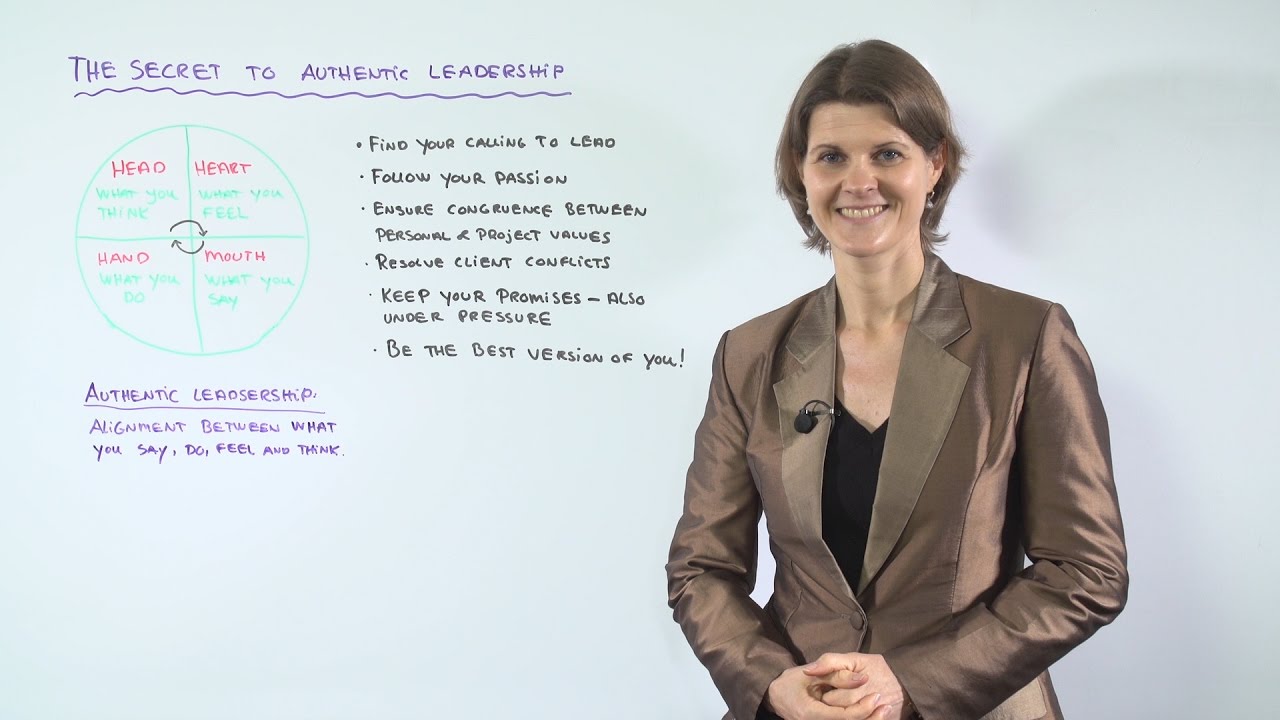 THE SECRET TO AUTHENTIC LEADERSHIP
HEAD
WHAT YOU
THINK
HEART
WHAT YOU
FEEL
HAND
WHAT YOU
DO
MOUTH
WHAT YOU
SAY
AUTHENTIC LEADSERSHIP.
ALIGNMENT BETWEEN WHAT
YOU SAY, DO, FEEL AND THINK.
• FIND YOUR CALLING TO LEAD
• FOLLOW YOUR PASSION
• ENSURE CONGRUENCE BETWEEN
PERSONAL & PROJECT VALUES
• RESOLVE CLIENT CONFLICTS
• KEEP YOUR PROMISES – ALSO
UNDER PRESSURE
• BE THE BEST VERSION OF YOU!